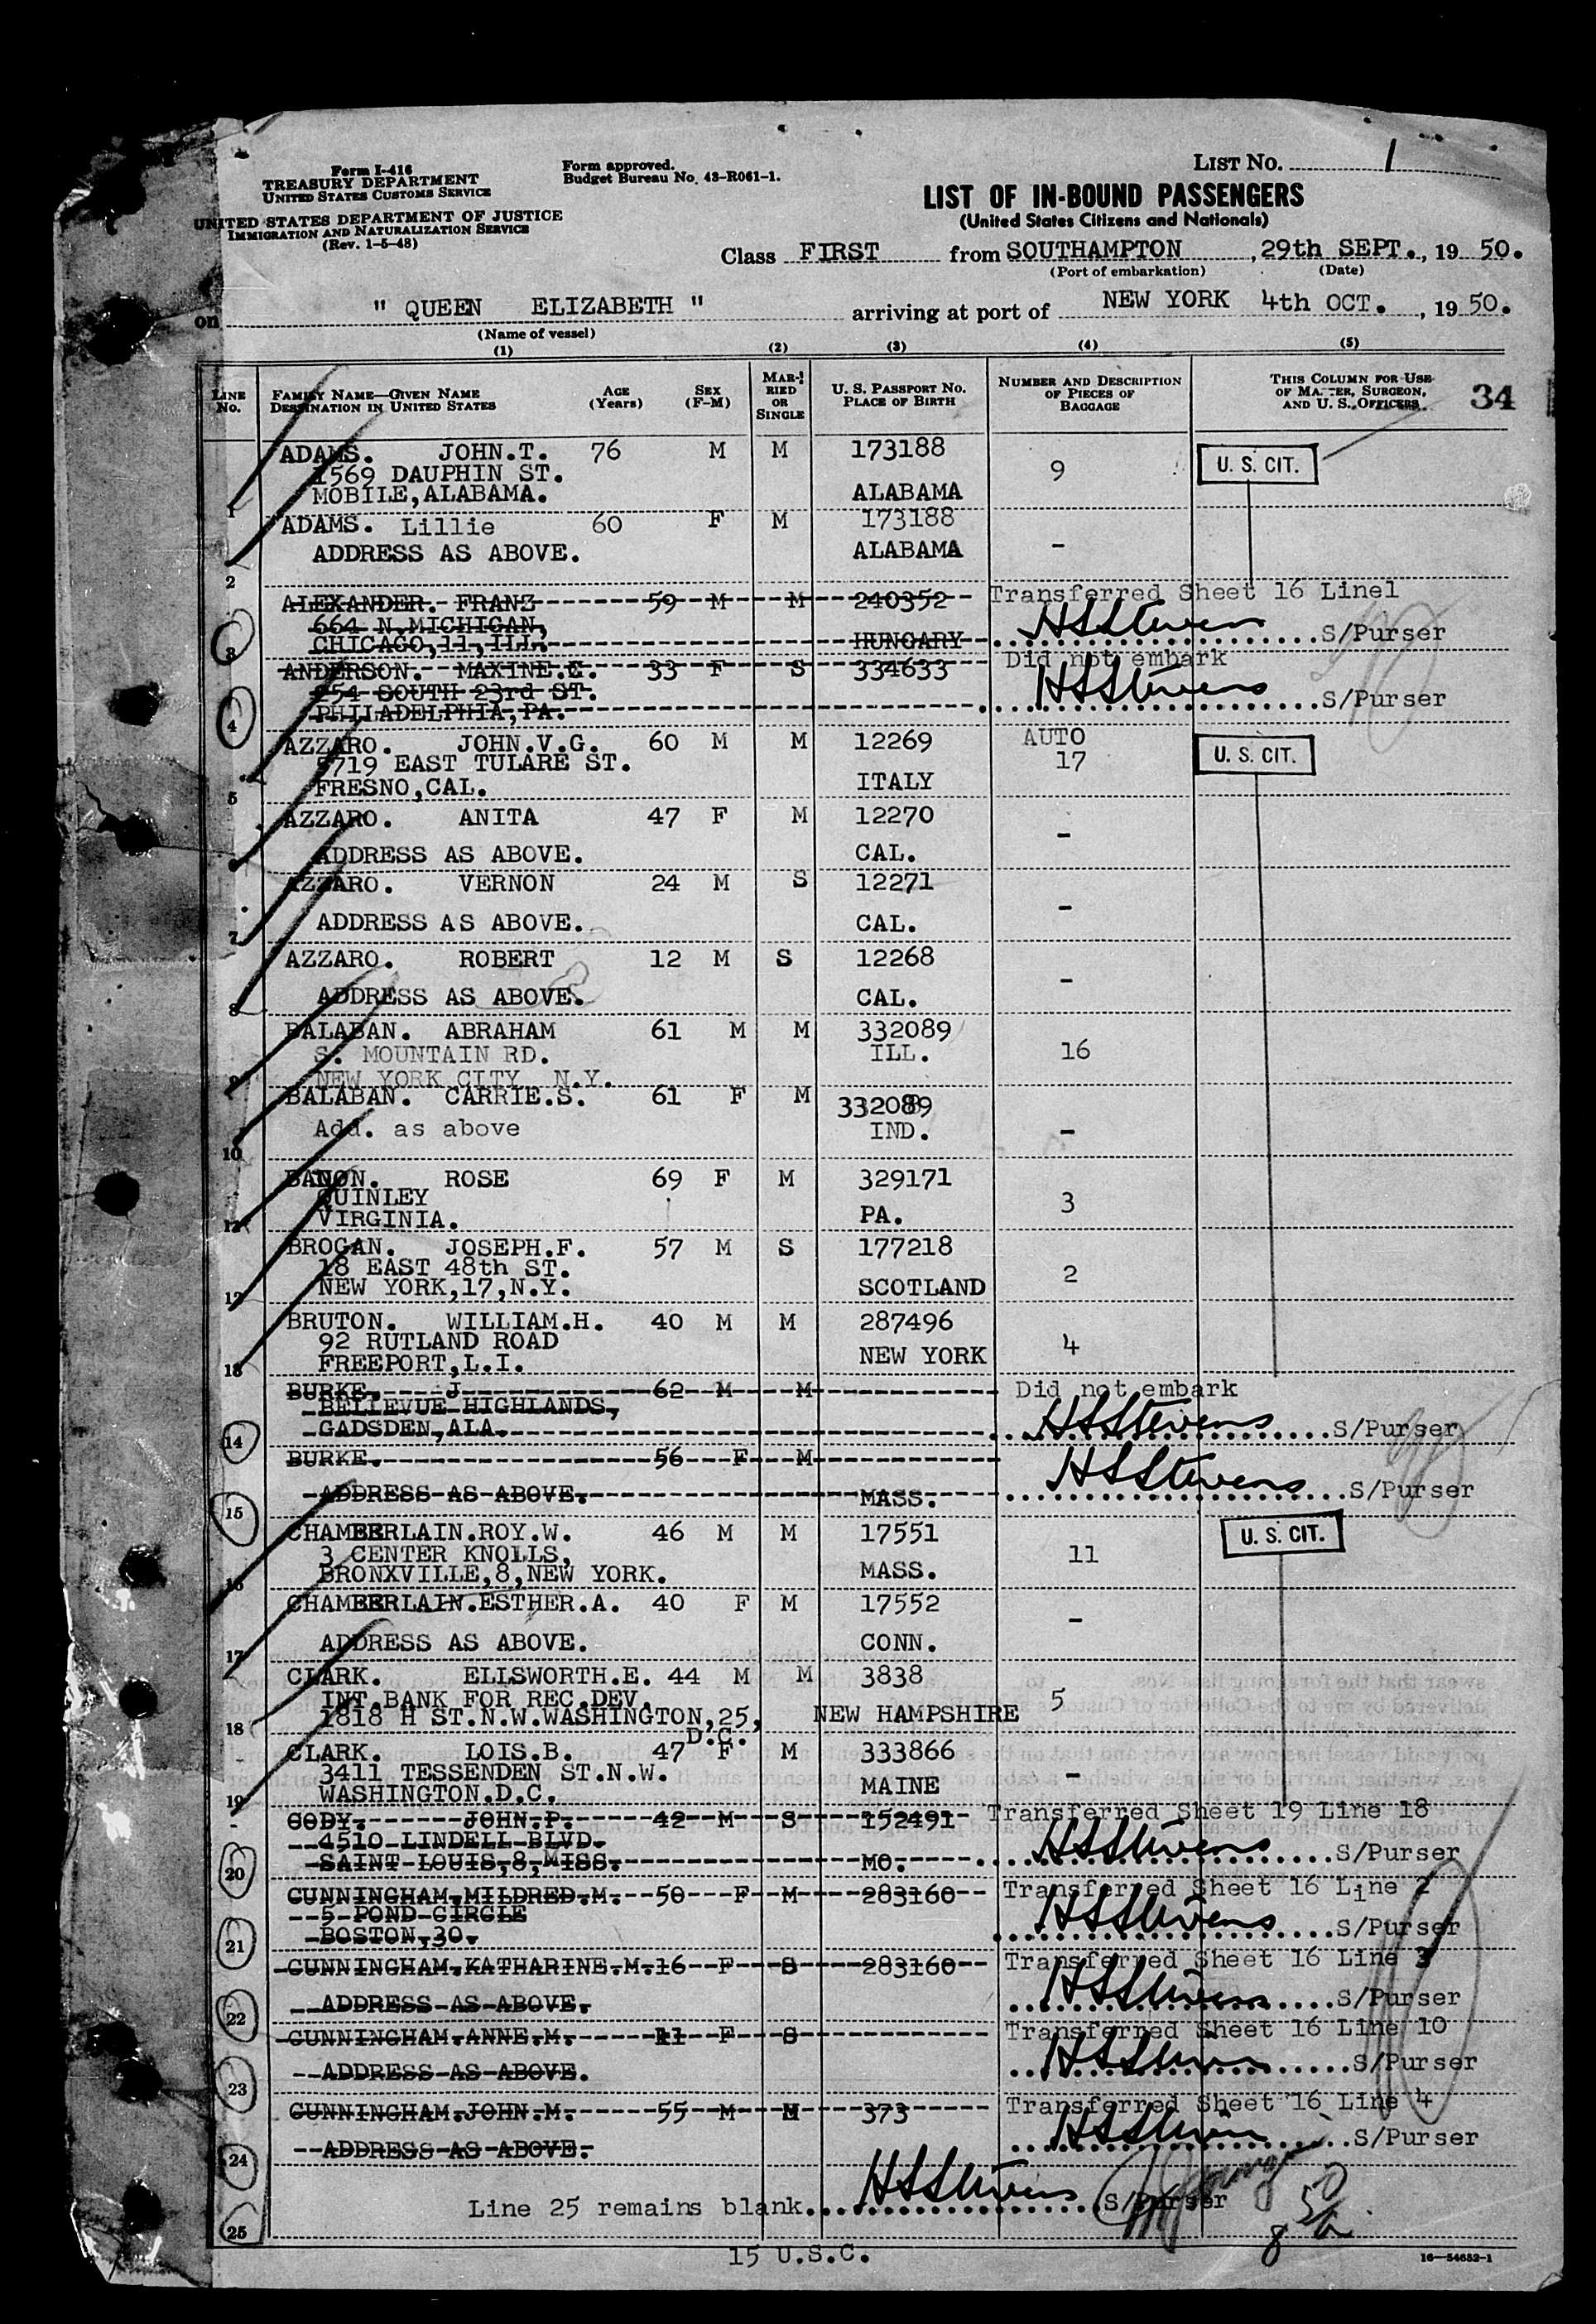 Form I-416
TREASURY DEPARTMENT
UNITED STATES CUSTOMS SERVICE
UNITED STATES DEPARTMENT OF JUSTICE
IMMIGRATION AND NATURALIZATION SERVICE
(Rev. 1-5-48)
Form approved.
Budget Bureau No. 43-R061-1.
LIST NO. 1
LIST OF IN-BOUND PASSENGERS
(United States Citizens and Nationals)
Class FIRST from SOUTHAMPTON, 29th SEPT., 19 50.
(Port of embarkation) (Date)
on " QUEEN ELIZABETH " arriving at port of NEW YORK 4th OCT. , 19 50.
(Name of vessel)
(1) (2) (3) (4) (5)
LINE NO.
FAMILY NAME—GIVEN NAME
DESTINATION IN UNITED STATES
AGE (Years)
SEX (F-M)
MARRIED OR SINGLE
U. S. PASSPORT NO.
PLACE OF BIRTH
NUMBER AND DESCRIPTION OF PIECES OF BAGGAGE
THIS COLUMN FOR USE OF MASTER, SURGEON, AND U. S. OFFICERS
34
ADAMS. JOHN.T. 76 M M 173188
1569 DAUPHIN ST. 9 U. S. CIT.
MOBILE,ALABAMA. ALABAMA
1
ADAMS. Lillie 60 F M 173188
ADDRESS AS ABOVE. ALABAMA -
2
ALEXANDER. FRANZ 59 M M 240352 Transferred Sheet 16 Line1
664 N.MICHIGAN,
CHICAGO,11,ILL. HUNGARY HSStevens S/Purser
3
ANDERSON. MAXINE.G. 33 F S 334633 Did not embark
254 SOUTH 23rd ST.
PHILADELPHIA,PA. HSStevens S/Purser
4
AZZARO. JOHN.V.G. 60 M M 12269 AUTO
5719 EAST TULARE ST. 17 U. S. CIT.
FRESNO,CAL. ITALY
5
AZZARO. ANITA 47 F M 12270
ADDRESS AS ABOVE. CAL. -
6
AZZARO. VERNON 24 M S 12271
ADDRESS AS ABOVE. CAL. -
7
AZZARO. ROBERT 12 M S 12268
ADDRESS AS ABOVE. CAL. -
8
BALABAN. ABRAHAM 61 M M 332089
S. MOUNTAIN RD. ILL. 16
NEW YORK CITY N.Y.
9
BALABAN. CARRIE.S. 61 F M 332089
Add. as above IND. -
10
ROSE 69 F M 329171
QUINLEY 3
VIRGINIA. PA.
11
BROGAN. JOSEPH.F. 57 M S 177218
18 EAST 48th ST. 2
NEW YORK,17,N.Y. SCOTLAND
12
BRUTON. WILLIAM.H. 40 M M 287496
92 RUTLAND ROAD 4
FREEPORT,L.I. NEW YORK
13
BURKE. J 62 M M Did not embark
BELLEVUE HIGHLANDS,
GADSDEN,ALA. HSStevens S/Purser
14
BURKE. 56 F M
ADDRESS AS ABOVE. MASS. HSStevens S/Purser
15
CHAMBERLAIN.ROY.W. 46 M M 17551
3 CENTER KNOLLS, 11 U. S. CIT.
BRONXVILLE,8,NEW YORK. MASS.
16
CHAMBERLAIN.ESTHER.A. 40 F M 17552
ADDRESS AS ABOVE. CONN. -
17
CLARK. ELLSWORTH.E. 44 M M 3838
INT.BANK FOR REC.DEV. 5
1818 H ST.N.W.WASHINGTON,25, D.C. NEW HAMPSHIRE
18
CLARK. LOIS.B. 47 F M 333866
3411 TESSENDEN ST.N.W. -
WASHINGTON.D.C. MAINE
19
CODY. JOHN.P. 42 M S 152491 Transferred Sheet 19 Line 18
4510 LINDELL BLVD.
SAINT LOUIS,8,MISS. MO. HSStevens S/Purser
20
CUNNINGHAM.MILDRED.M. 50 F M 283160 Transferred Sheet 16 Line 2
5 POND CIRCLE
BOSTON,30. HSStevens S/Purser
21
CUNNINGHAM.KATHARINE.M.16 F S 283160 Transferred Sheet 16 Line 3
ADDRESS AS ABOVE. HSStevens S/Purser
22
CUNNINGHAM.ANNE.M. 11 F S Transferred Sheet 16 Line 10
ADDRESS AS ABOVE. HSStevens S/Purser
23
CUNNINGHAM.JOHN.M. 55 M M 373 Transferred Sheet 16 Line 4
ADDRESS AS ABOVE. HSStevens S/Purser
24
Line 25 remains blank. HSStevens S/Purser
25
15 U.S.C.
16—54652-1